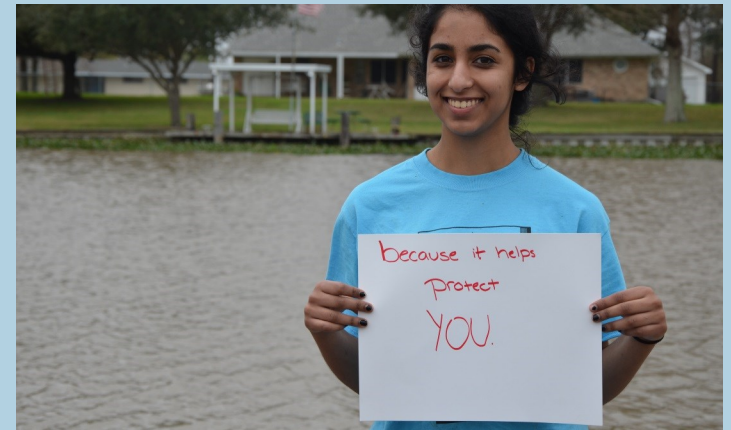 because it helps
protect
YOU.